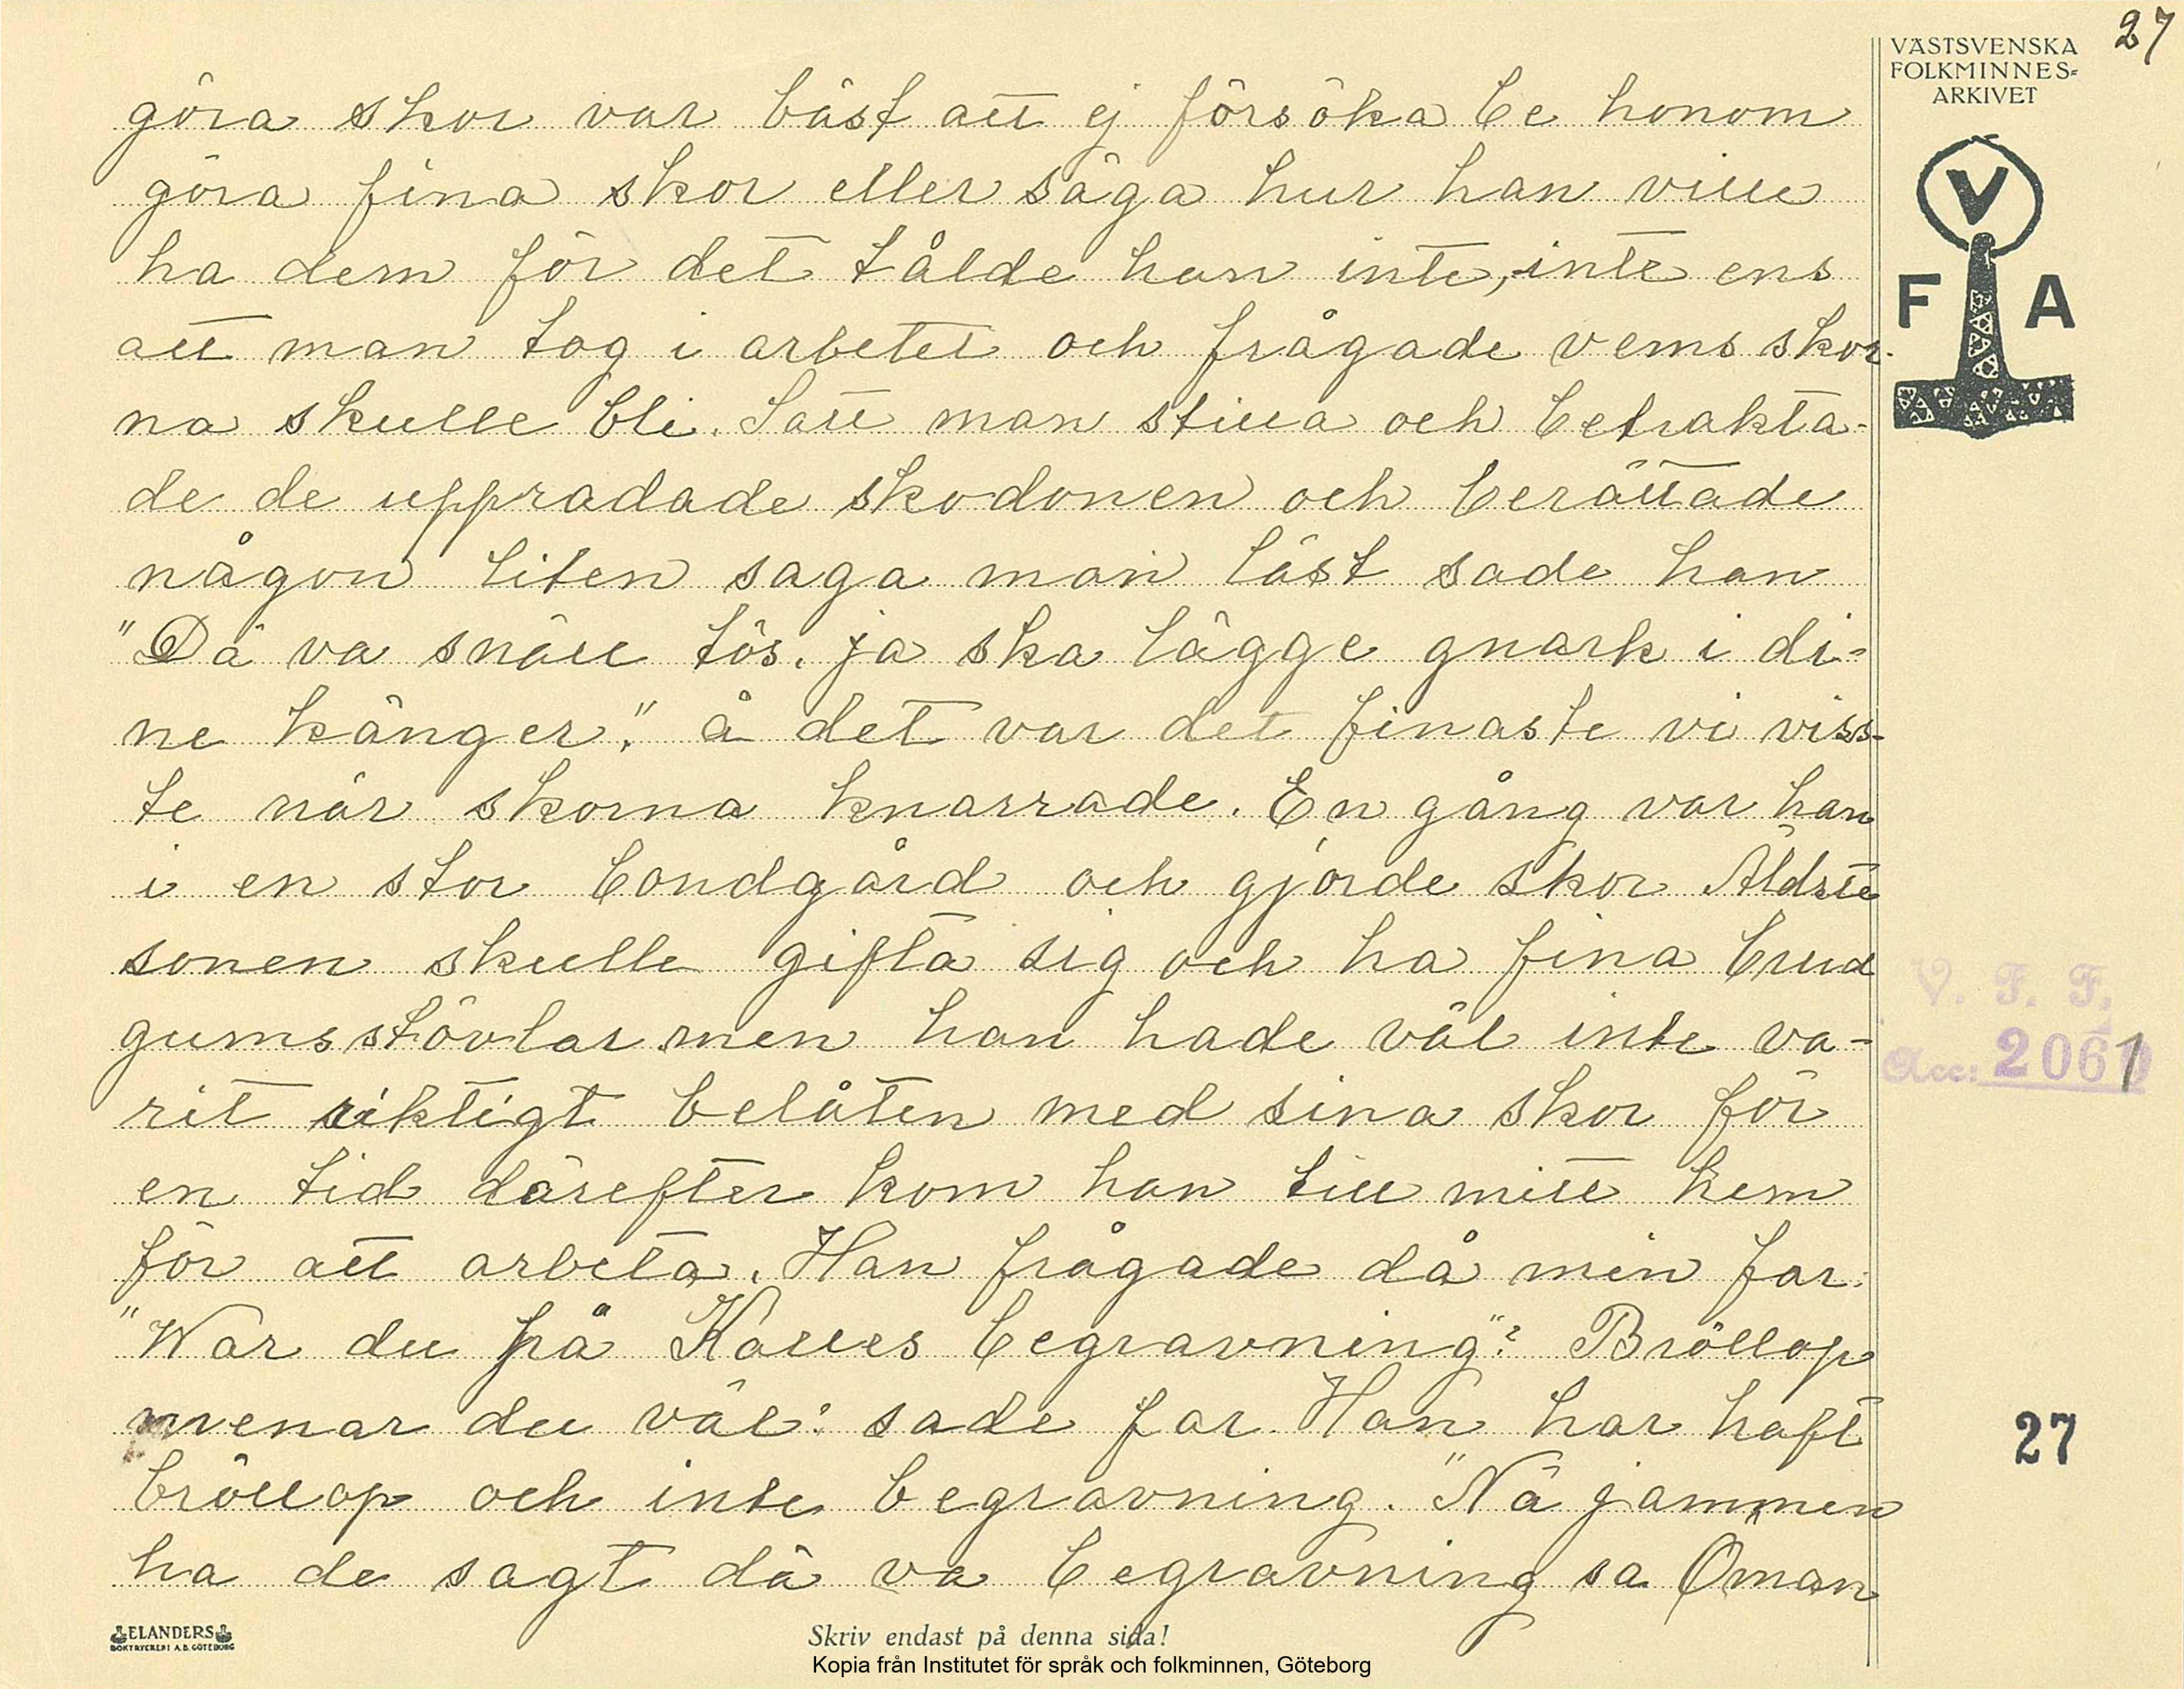 27
VÄSTSVENSKA
FOLKMINNES-
ARKIVET
V
F A
göra skor var bäst att ej försöka be honom
göra fina skor eller säga hur han ville
ha dem för det tålde han inte, inte ens
att man tog i arbetet och frågade vems skor-
na skulle bli. Satt man stilla och betrakta-
de de uppradade skodonen och berättade
någon liten saga man läst sade han
"Dä va snäll tös. ja ska lägge gnark i di-
ne känger." å det var det finaste vi viss-
te när skorna knarrade. En gång var han
i en stor bondgård och gjorde skor Äldste
sonen skulle gifta sig och ha fina brud
gumsstövlar men han hade väl inte va-
rit riktigt belåten med sina skor för
en tid därefter kom han till mitt hem
för att arbeta. Han frågade då min far:
"War du på Kalles begravning"? Bröllop
menar du väl: sade far. Han har haft
bröllop och inte begravning. "Nä jammen
ha de sagt dä va begravning sa Öman
V. F. F.
Acc: 2061
27
ELANDERS
BOKTRYCKERI A.B. GÖTEBORG
Skriv endast på denna sida!
Kopia från Institutet för språk och folkminnen, Göteborg